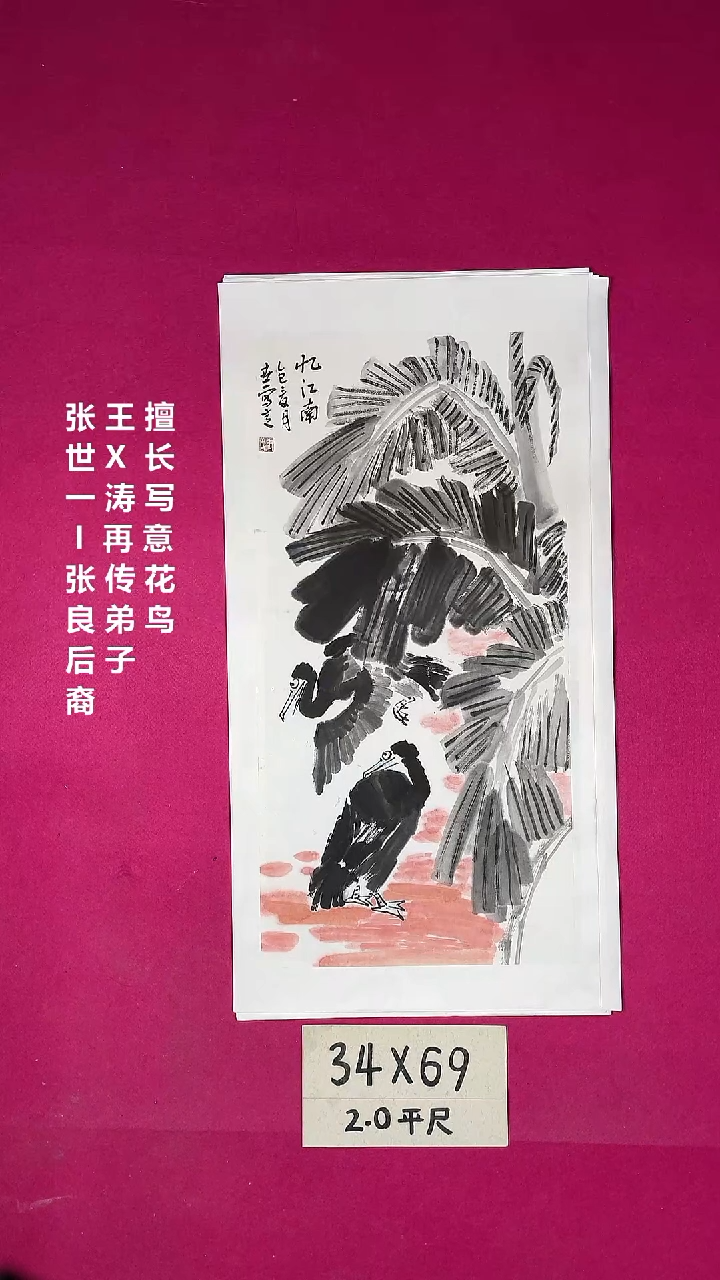 擅长写意花鸟
王X涛再传弟子
张世一一张良后裔
忆江南
34X69
2.0平尺